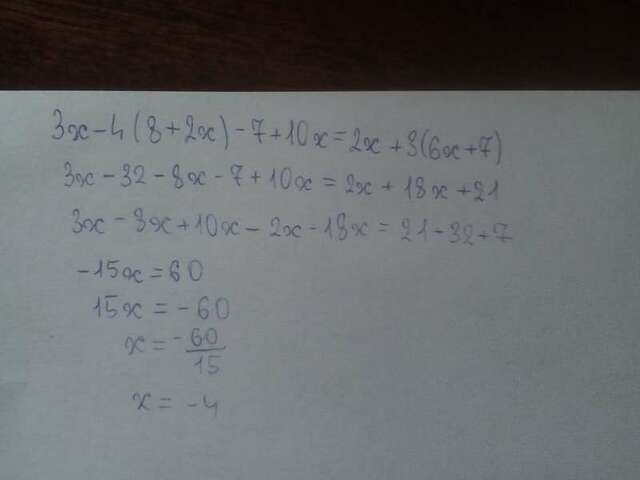 3x-4(8+2x)-7+10x=2x+3(6x+7)
3x-32-8x-7+10x=2x+18x+21
3x-8x+10x-2x-18x=21+32+7
-15x=60
15x=-60
x=-60/15
x=-4